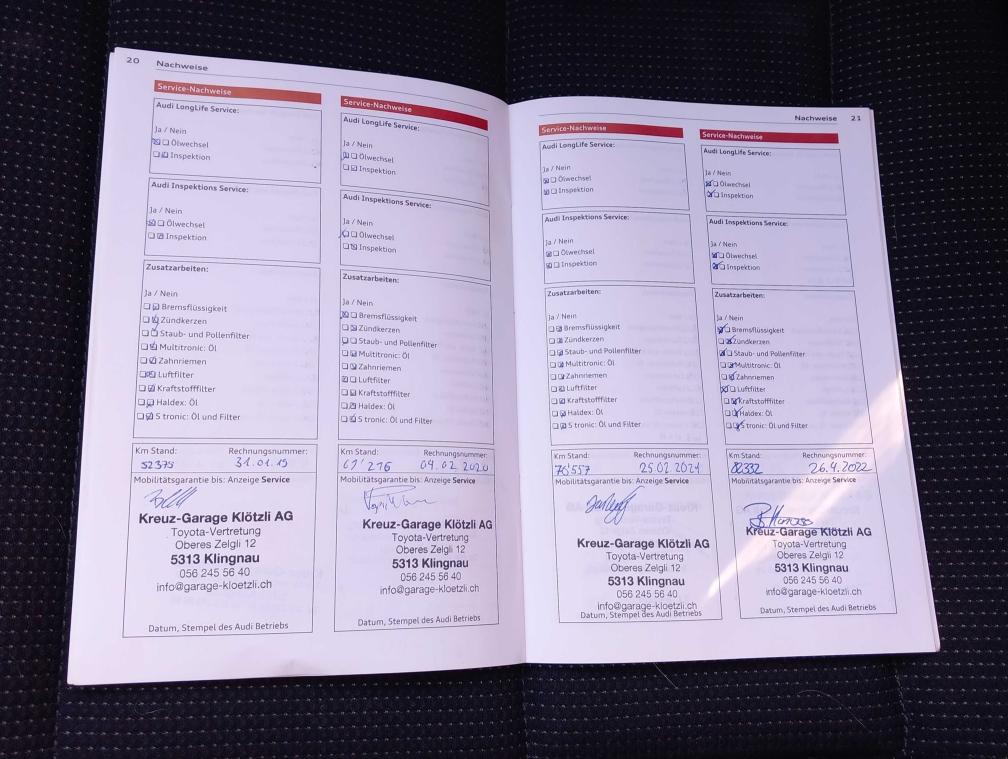 20 Nachweise
Service-Nachweise
Audi LongLife Service:
Ja / Nein
Ölwechsel
Inspektion
Audi Inspektions Service:
Ja / Nein
Ölwechsel
Inspektion
Zusatzarbeiten:
Ja / Nein
Bremsflüssigkeit
Zündkerzen
Staub- und Pollenfilter
Multitronic: Öl
Zahnriemen
Luftfilter
Kraftstofffilter
Haldex: Öl
S tronic: Öl und Filter
Km Stand: Rechnungsnummer:
52375 31.01.19
Mobilitätsgarantie bis: Anzeige Service
Kreuz-Garage Klötzli AG
Toyota-Vertretung
Oberes Zelgli 12
5313 Klingnau
056 245 56 40
info@garage-kloetzli.ch
Datum, Stempel des Audi Betriebs
Service-Nachweise
Audi LongLife Service:
Ja / Nein
Ölwechsel
Inspektion
Audi Inspektions Service:
Ja / Nein
Ölwechsel
Inspektion
Zusatzarbeiten:
Ja / Nein
Bremsflüssigkeit
Zündkerzen
Staub- und Pollenfilter
Multitronic: Öl
Zahnriemen
Luftfilter
Kraftstofffilter
Haldex: Öl
S tronic: Öl und Filter
Km Stand: Rechnungsnummer:
67'276 04.02.2020
Mobilitätsgarantie bis: Anzeige Service
Kreuz-Garage Klötzli AG
Toyota-Vertretung
Oberes Zelgli 12
5313 Klingnau
056 245 56 40
info@garage-kloetzli.ch
Datum, Stempel des Audi Betriebs
Nachweise 21
Service-Nachweise
Audi LongLife Service:
Ja / Nein
Ölwechsel
Inspektion
Audi Inspektions Service:
Ja / Nein
Ölwechsel
Inspektion
Zusatzarbeiten:
Ja / Nein
Bremsflüssigkeit
Zündkerzen
Staub- und Pollenfilter
Multitronic: Öl
Zahnriemen
Luftfilter
Kraftstofffilter
Haldex: Öl
S tronic: Öl und Filter
Km Stand: Rechnungsnummer:
76'557 25.02.2021
Mobilitätsgarantie bis: Anzeige Service
Kreuz-Garage Klötzli AG
Toyota-Vertretung
Oberes Zelgli 12
5313 Klingnau
056 245 56 40
info@garage-kloetzli.ch
Datum, Stempel des Audi Betriebs
Service-Nachweise
Audi LongLife Service:
Ja / Nein
Ölwechsel
Inspektion
Audi Inspektions Service:
Ja / Nein
Ölwechsel
Inspektion
Zusatzarbeiten:
Ja / Nein
Bremsflüssigkeit
Zündkerzen
Staub- und Pollenfilter
Multitronic: Öl
Zahnriemen
Luftfilter
Kraftstofffilter
Haldex: Öl
S tronic: Öl und Filter
Km Stand: Rechnungsnummer:
82332 26.4.2022
Mobilitätsgarantie bis: Anzeige Service
Kreuz-Garage Klötzli AG
Toyota-Vertretung
Oberes Zelgli 12
5313 Klingnau
056 245 56 40
info@garage-kloetzli.ch
Datum, Stempel des Audi Betriebs